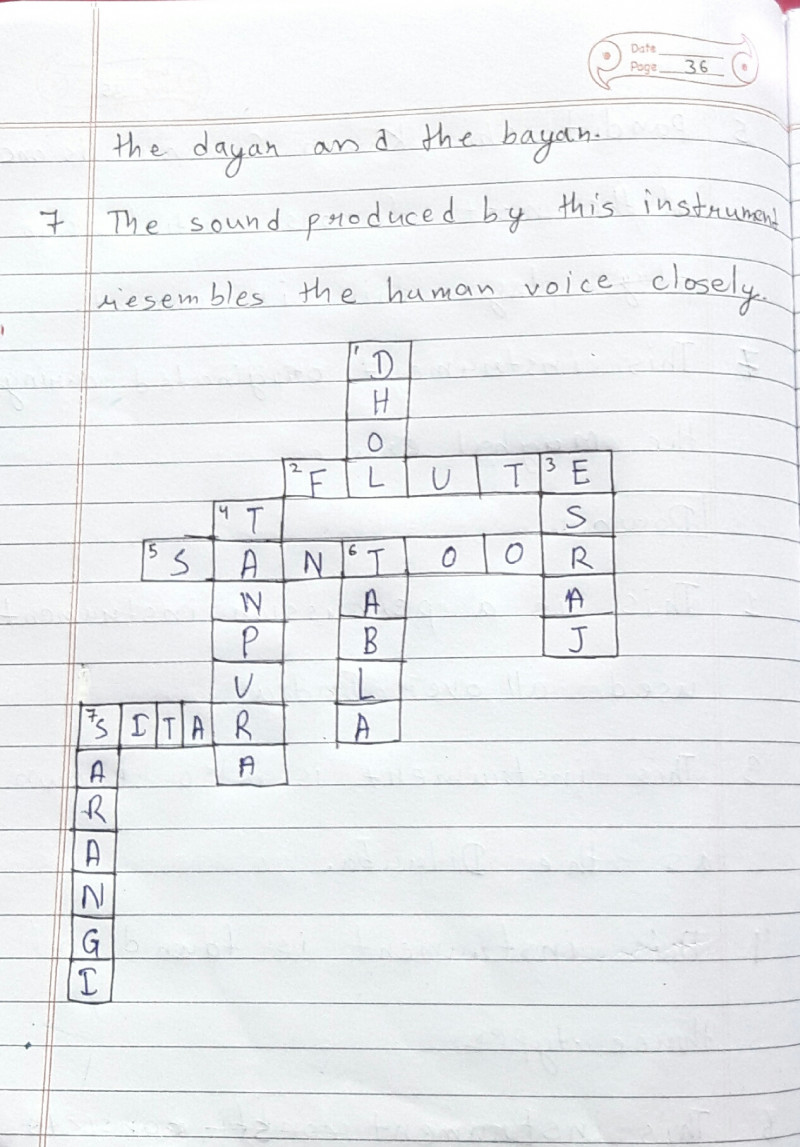 Date
Page 36
the dayan and the bayan.
7 The sound produced by this instrument
resembles the human voice closely.
1 D
H
O
2 F L U T 3 E
4 T S
5 S A N 6 T O O R
N A A
P B J
U L
7 S I T A R A
A A
R
A
N
G
I